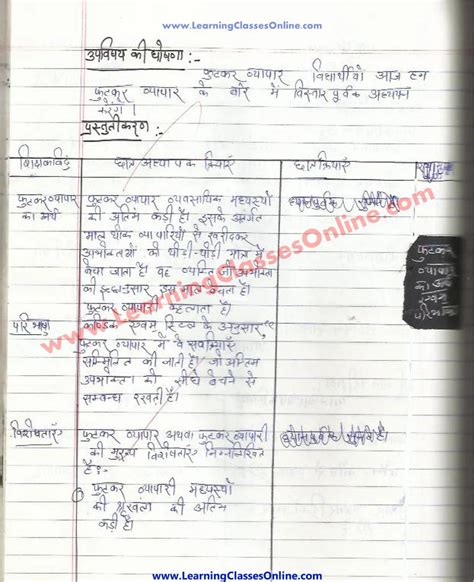 www.LearningClassesOnline.com
उपविषय की घोषणा :-
फुटकर व्यापार विद्यार्थियों आज हम
फुटकर व्यापार के बारे में विस्तार पूर्वक अध्ययन
करेंगे ।
प्रस्तुतीकरण:-
शिक्षणबिंदु छात्र अध्यापक क्रियाएँ छात्र क्रियाएँ
फुटकर व्यापार फुटकर व्यापार व्यवसायिक मध्यस्थों ध्यानपूर्वक
का अर्थ की अंतिम कड़ी है। इसके अंतर्गत
माल थोक व्यापारियों से खरीदकर
उपभोक्ताओं को थोड़ी-थोड़ी मात्रा में
बेचा जाता है। वह व्यक्ति जो उपभोक्ता
की इच्छानुसार उसे माल बेचता है।
फुटकर व्यापार कहलाता है।
परिभाषा एवम स्टिल के अनुसार,
फुटकर व्यापार में वे सब क्रियाएँ
सम्मिलित की जाती है। जो अन्तिम
उपभोक्ता को सीधे बेचने से
सम्बन्ध रखती है।
फुटकर
व्यापार
का अर्थ
एवम
परिभाषा
www.LearningClassesOnline.com
विशेषताएँ फुटकर व्यापार अथवा फुटकर व्यापारी
की मुख्य विशेषताएं निम्नलिखित
हैः-
फुटकर व्यापारी मध्यस्थों
की श्रृंखला की अंतिम
कड़ी है।
www.LearningClassesOnline.com